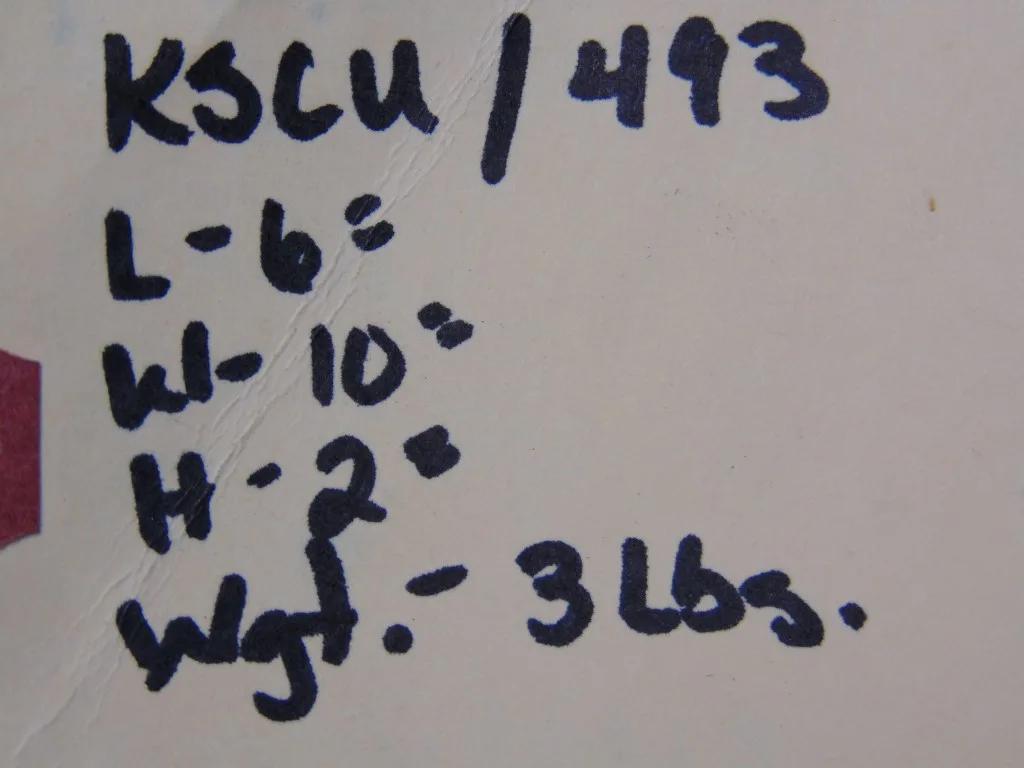 KSCU / 493
L - 6"
W - 10"
H - 2"
Wgt. - 3 Lbs.